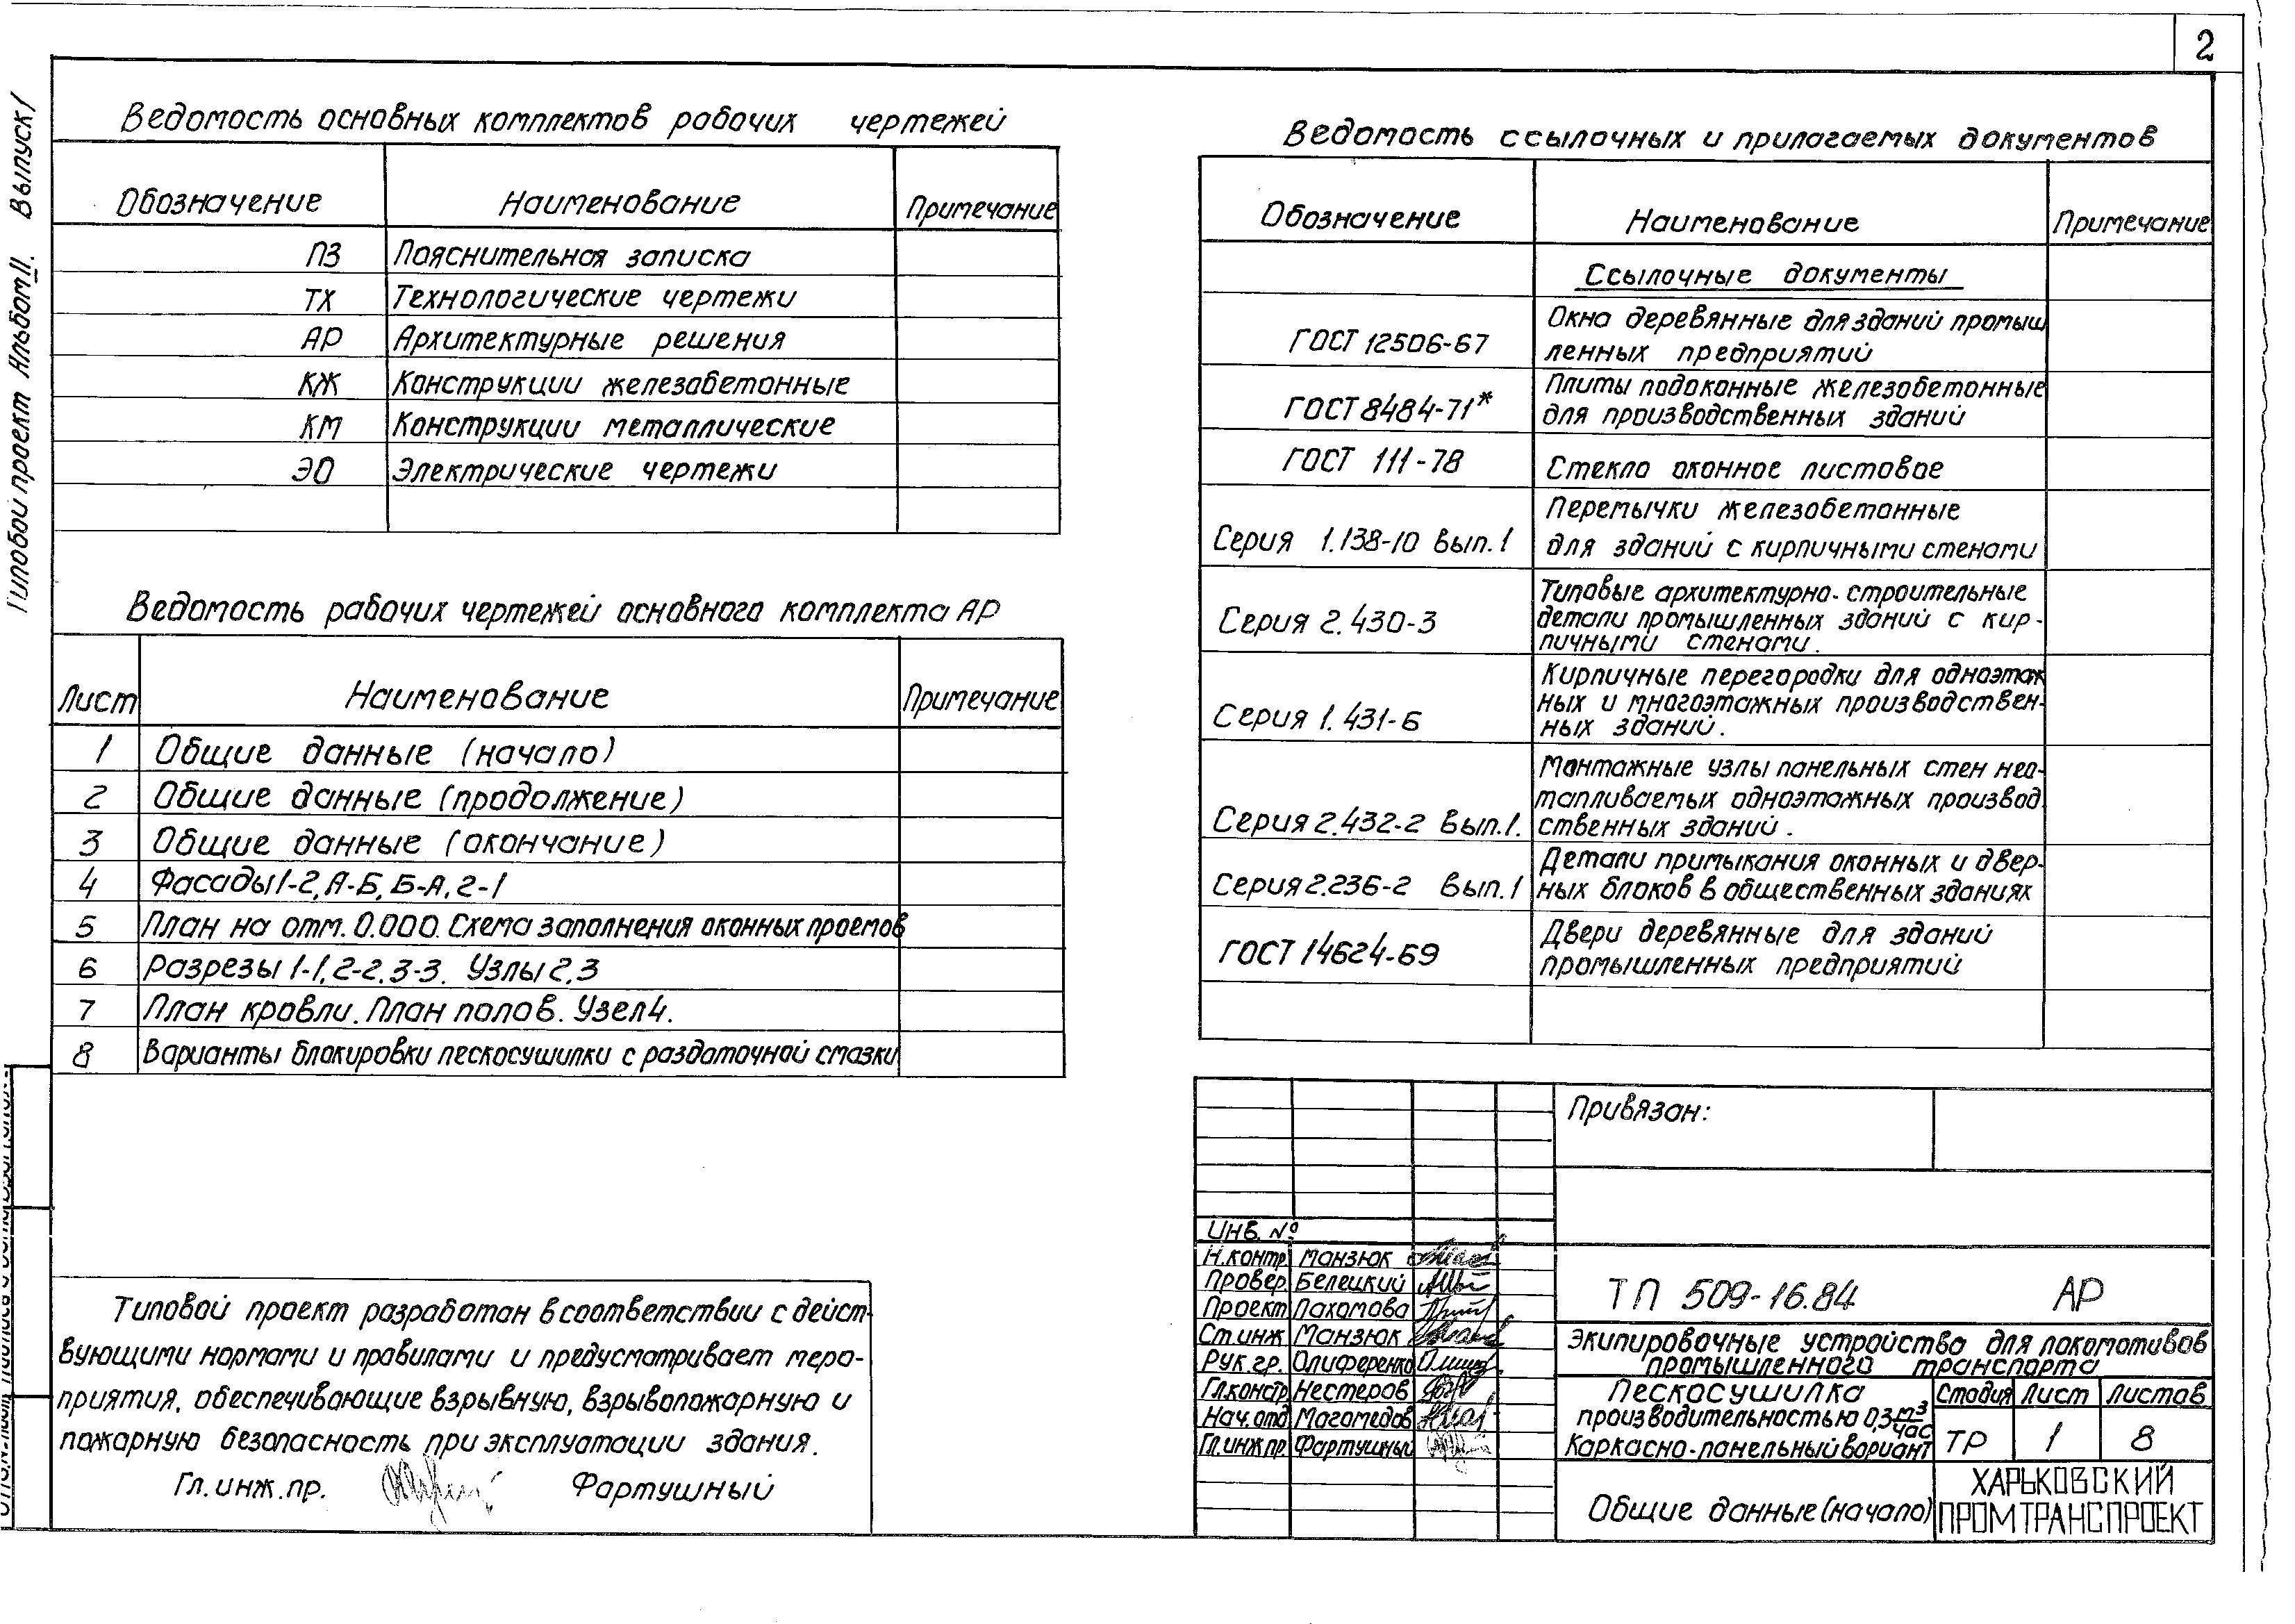 2
Типовой проект Альбом II. Выпуск 1
Ведомость основных комплектов рабочих чертежей
Обозначение Наименование Примечание
ПЗ Пояснительная записка
ТХ Технологические чертежи
АР Архитектурные решения
КЖ Конструкции железобетонные
КМ Конструкции металлические
ЭО Электрические чертежи
Ведомость рабочих чертежей основного комплекта АР
Лист Наименование Примечание
1 Общие данные (начало)
2 Общие данные (продолжение)
3 Общие данные (окончание)
4 Фасады 1-2, А-Б, Б-А, 2-1
5 План на отм. 0.000. Схема заполнения оконных проемов
6 Разрезы 1-1, 2-2, 3-3. Узлы 2,3
7 План кровли. План полов. Узел 4.
8 Варианты блокировки пескосушилки с раздаточной смазки
Типовой проект разработан в соответствии с дейст-
вующими нормами и правилами и предусматривает меро-
приятия, обеспечивающие взрывную, взрывопожарную и
пожарную безопасность при эксплуатации здания.
Гл. инж. пр. Фартушный
Ведомость ссылочных и прилагаемых документов
Обозначение Наименование Примечание
Ссылочные документы
ГОСТ 12506-67 Окна деревянные для зданий промыш
ленных предприятий
ГОСТ 8484-71* Плиты подоконные железобетонные
для производственных зданий
ГОСТ 111-78 Стекло оконное листовое
Серия 1.138-10 Вып. 1 Перемычки железобетонные
для зданий с кирпичными стенами
Серия 2.430-3 Типовые архитектурно-строительные
детали промышленных зданий с кир-
пичными стенами.
Серия 1.431-6 Кирпичные перегородки для одноэтаж
ных и многоэтажных производствен-
ных зданий.
Серия 2.432-2 Вып. 1. Монтажные узлы панельных стен нео-
тапливаемых одноэтажных производ
ственных зданий.
Серия 2.236-2 Вып. 1 Детали примыкания оконных и двер-
ных блоков в общественных зданиях
ГОСТ 14624-69 Двери деревянные для зданий
промышленных предприятий
Привязан:
Инв. №
Н.контр. Манзюк
Провер. Белецкий
Проект. Пахомова
Ст.инж. Манзюк
Рук.гр. Олиференко
Гл.констр. Нестеров
Нач.отд. Магомедов
Гл.инж.пр. Фартушный
ТП 509-16.84 АР
Экипировочные устройства для локомотивов
промышленного транспорта
Пескосушилка
производительностью 0,3 м³/час
Каркасно-панельный вариант
Стадия Лист Листов
ТР 1 8
Общие данные (начало)
ХАРЬКОВСКИЙ
ПРОМТРАНСПРОЕКТ